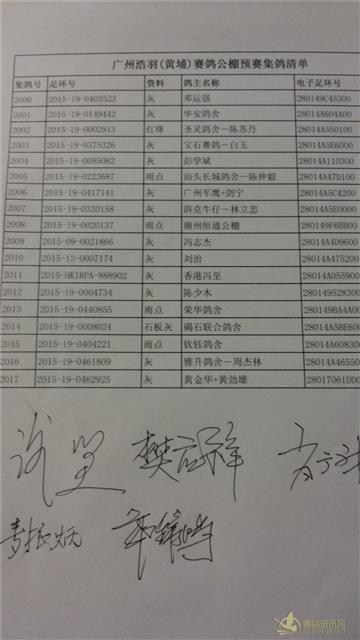 广州浩羽(黄埔)赛鸽公棚预赛集鸽清单
集鸽号 足环号 资料 鸽主名称 电子足环号
2000 2015-19-0403523 灰 邓运强 280149C45300
2001 2015-19-0149442 灰 华安鸽舍 28014A604A00
2002 2015-19-0002913 红绛 圣灵鸽舍-陈苏丹 28014A550100
2003 2015-19-0375326 灰 宝石赛鸽-白玉 28014A5E6000
2004 2015-19-0085062 灰 彭学斌 28014A110300
2005 2015-19-0223687 雨点 汕头长城鸽舍-陈仲毅 28014A47D100
2006 2015-19-0417141 灰 广州军鹰+剑宁 28014A5C4200
2007 2015-19-0330158 灰 湃克牛仔-林立忠 28014A5E0000
2008 2015-19-0020137 雨点 潮州恒通公棚 280149F6BB00
2009 2015-09-0021866 灰 冯志杰 28014A4D9600
2010 2015-13-0007174 灰 刘治 28014A475200
2011 2015-HKIRPA-888902 灰 香港冯至 28014A055900
2012 2015-19-0004734 灰 陈少木 280149528300
2013 2015-19-0440855 雨点 荣华鸽舍 280149BA4A00
2014 2015-19-0008024 石板灰 碣石联合鸽舍 28014A5BE600
2015 2015-19-0404221 雨点 钦钰鸽舍 28014A608300
2016 2015-19-0461809 灰 雅升鸽舍-周杰林 28014A465500
2017 2015-19-0462925 灰 黄金华+黄劲雄 28017061DD00
赛鸽资讯网